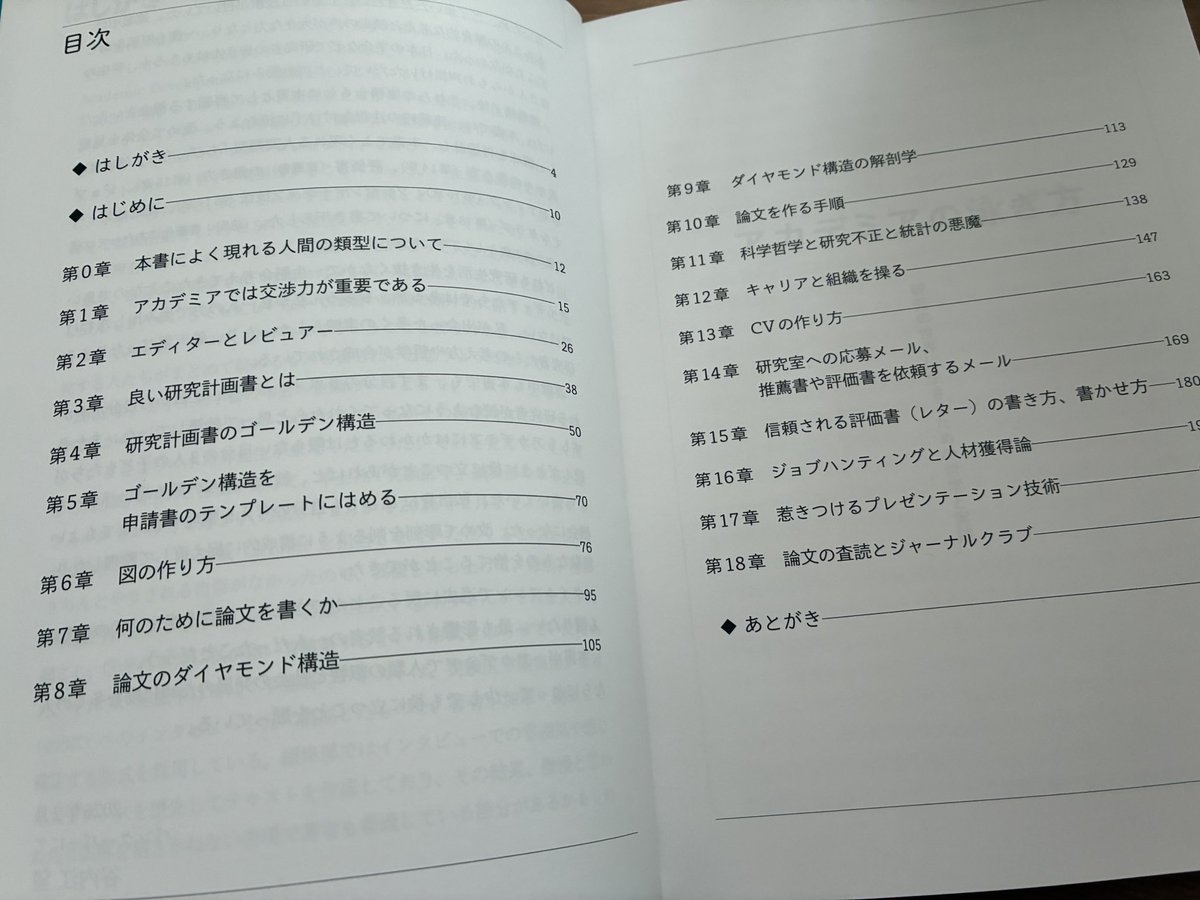 目次
◆ はしがき 4
◆ はじめに 10
第0章 本書によく現れる人間の類型について 12
第1章 アカデミアでは交渉力が重要である 15
第2章 エディターとレビュアー 26
第3章 良い研究計画書とは 38
第4章 研究計画書のゴールデン構造 50
第5章 ゴールデン構造を
申請書のテンプレートにはめる 70
第6章 図の作り方 76
第7章 何のために論文を書くか 95
第8章 論文のダイヤモンド構造 105
第9章 ダイヤモンド構造の解剖学 113
第10章 論文を作る手順 129
第11章 科学哲学と研究不正と統計の悪魔 138
第12章 キャリアと組織を操る 147
第13章 CVの作り方 163
第14章 研究室への応募メール、
推薦書や評価書を依頼するメール 169
第15章 信頼される評価書（レター）の書き方、書かせ方 180
第16章 ジョブハンティングと人材獲得論
第17章 惹きつけるプレゼンテーション技術
第18章 論文の査読とジャーナルクラブ
◆ あとがき